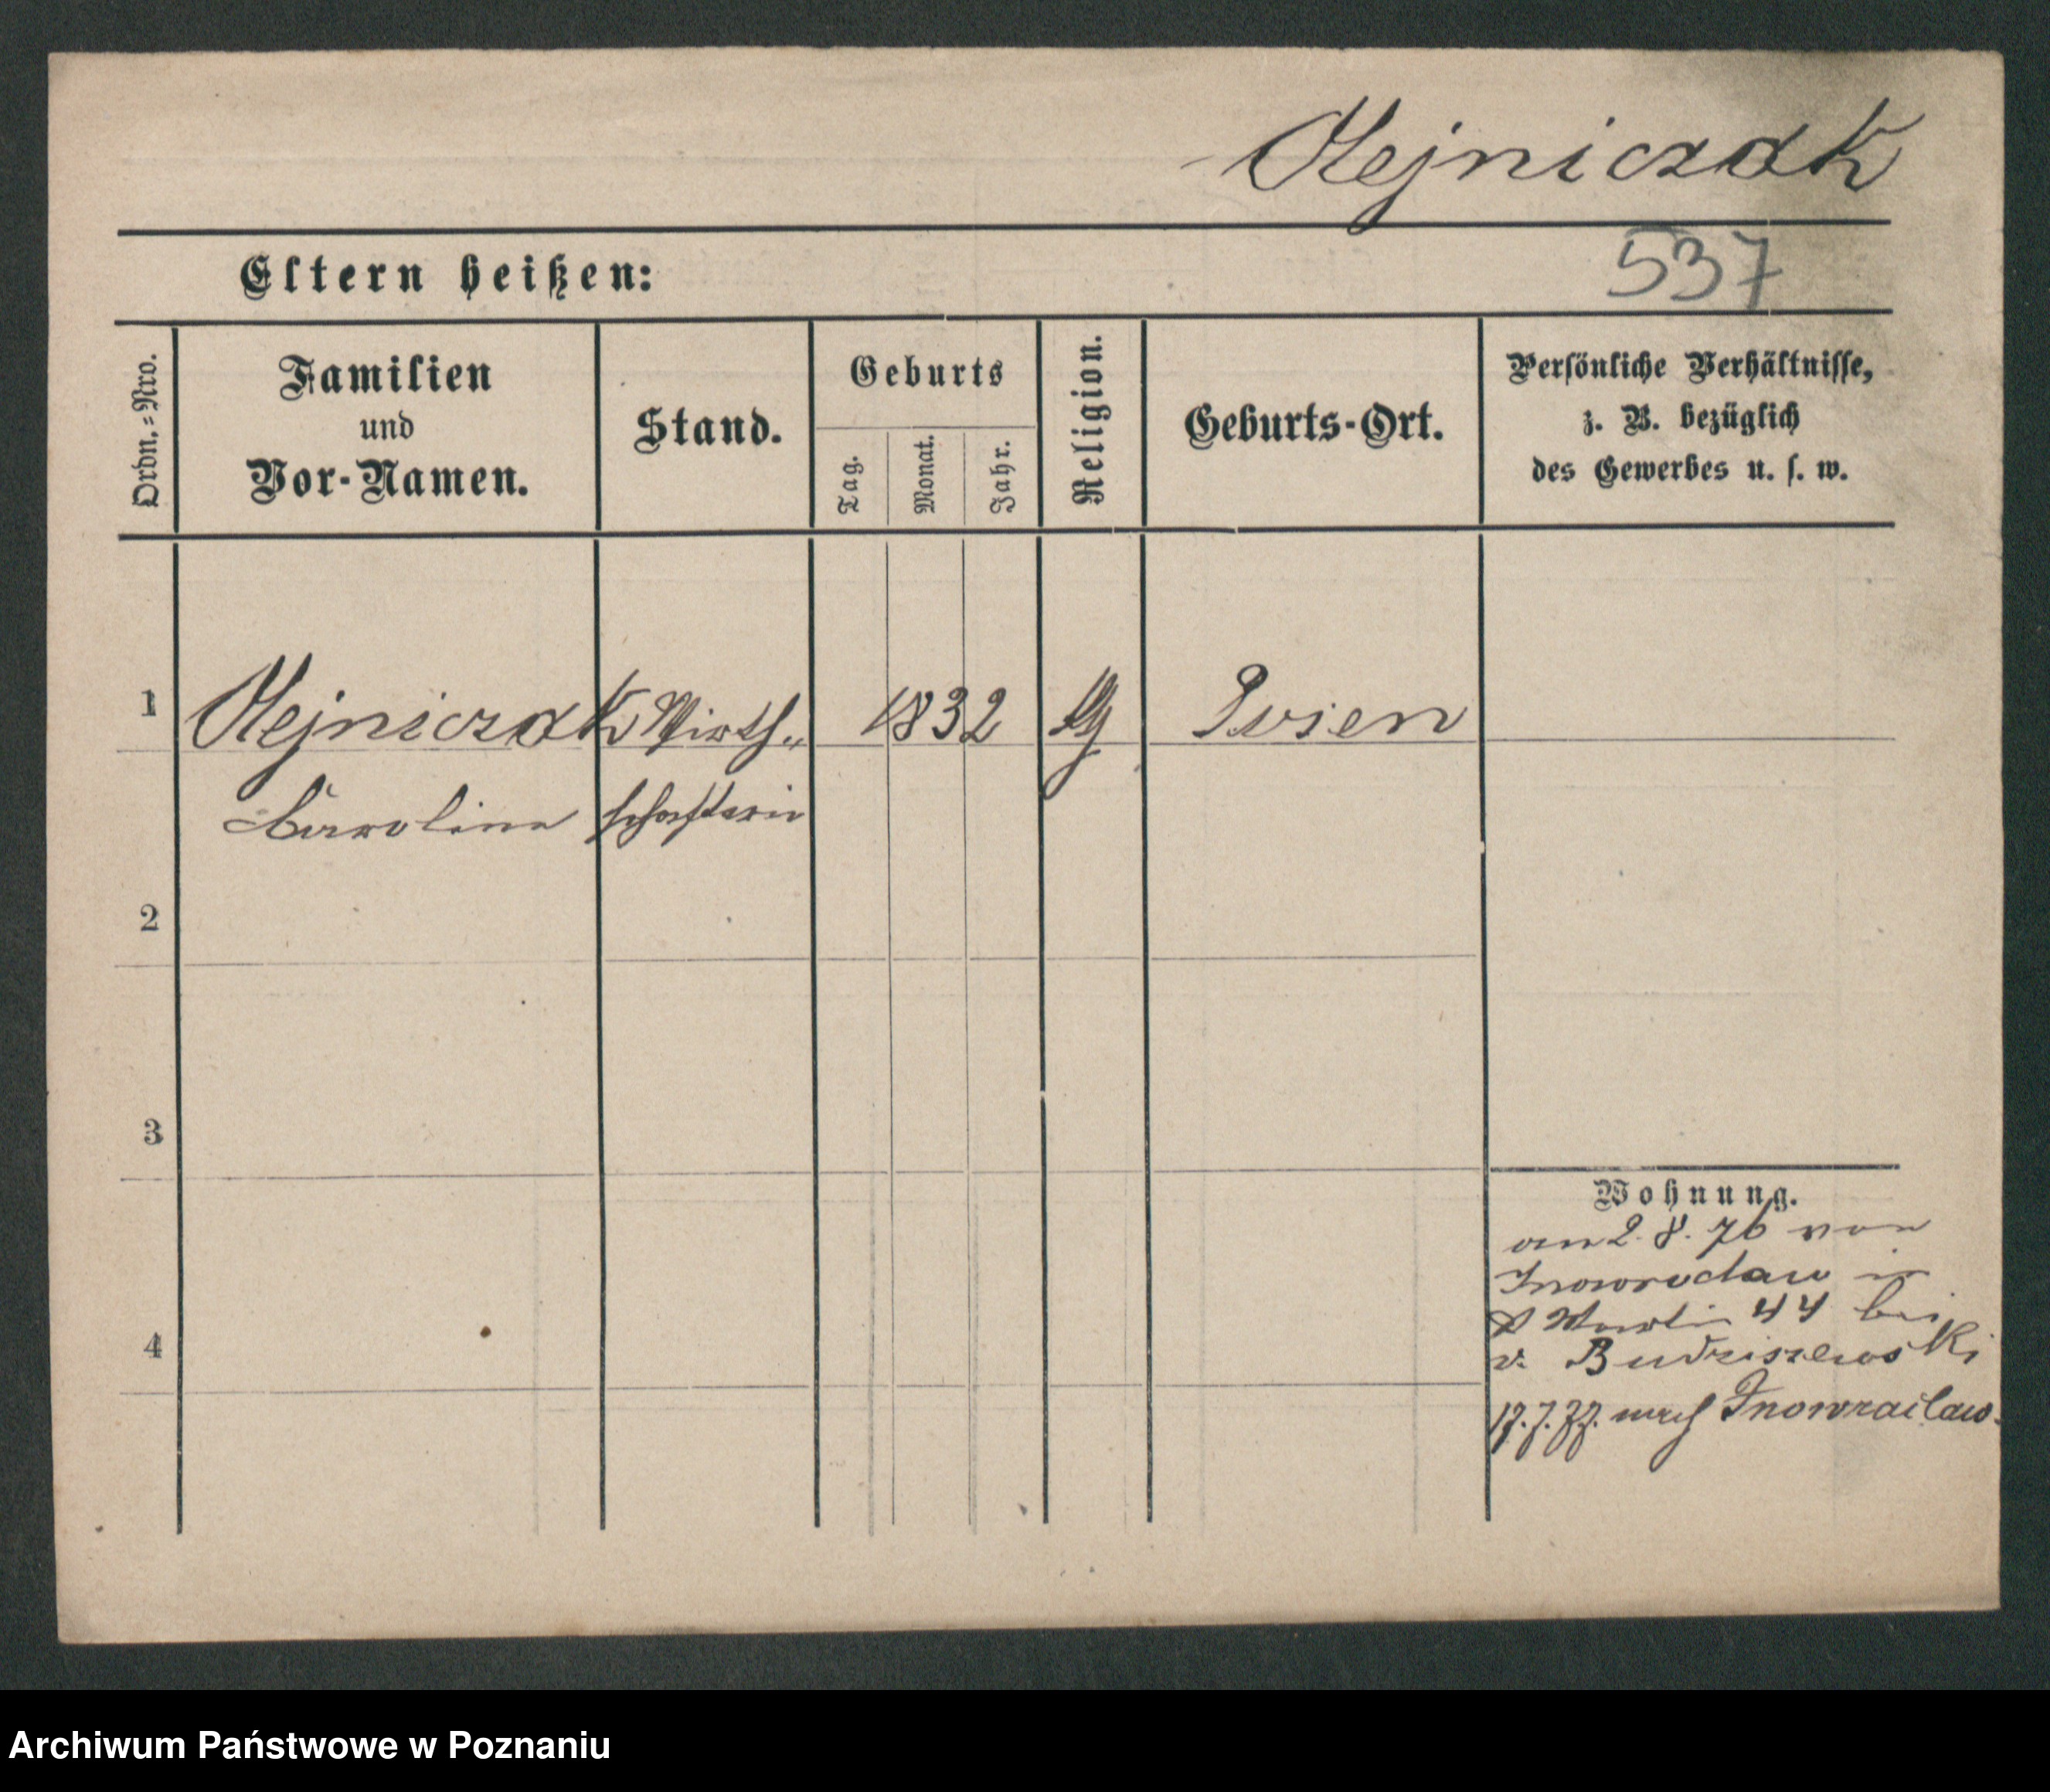 Olejniczak
537
Eltern heißen:
Ordn.-Nro.
Familien
und
Vor-Namen.
Stand.
Geburts
Tag.
Monat.
Jahr.
Religion.
Geburts-Ort.
Persönliche Verhältnisse,
z. B. bezüglich
des Gewerbes u. s. w.
1
Olejniczak Wirth-
1832
Caroline schafterin
2
3
4
Wohnung.
am 2. 8. 76 von
Inowroclaw in
St Martin 44 bei
v. Budziszewski
17. 7. 77. nach Inowraclaw.
Archiwum Państwowe w Poznaniu